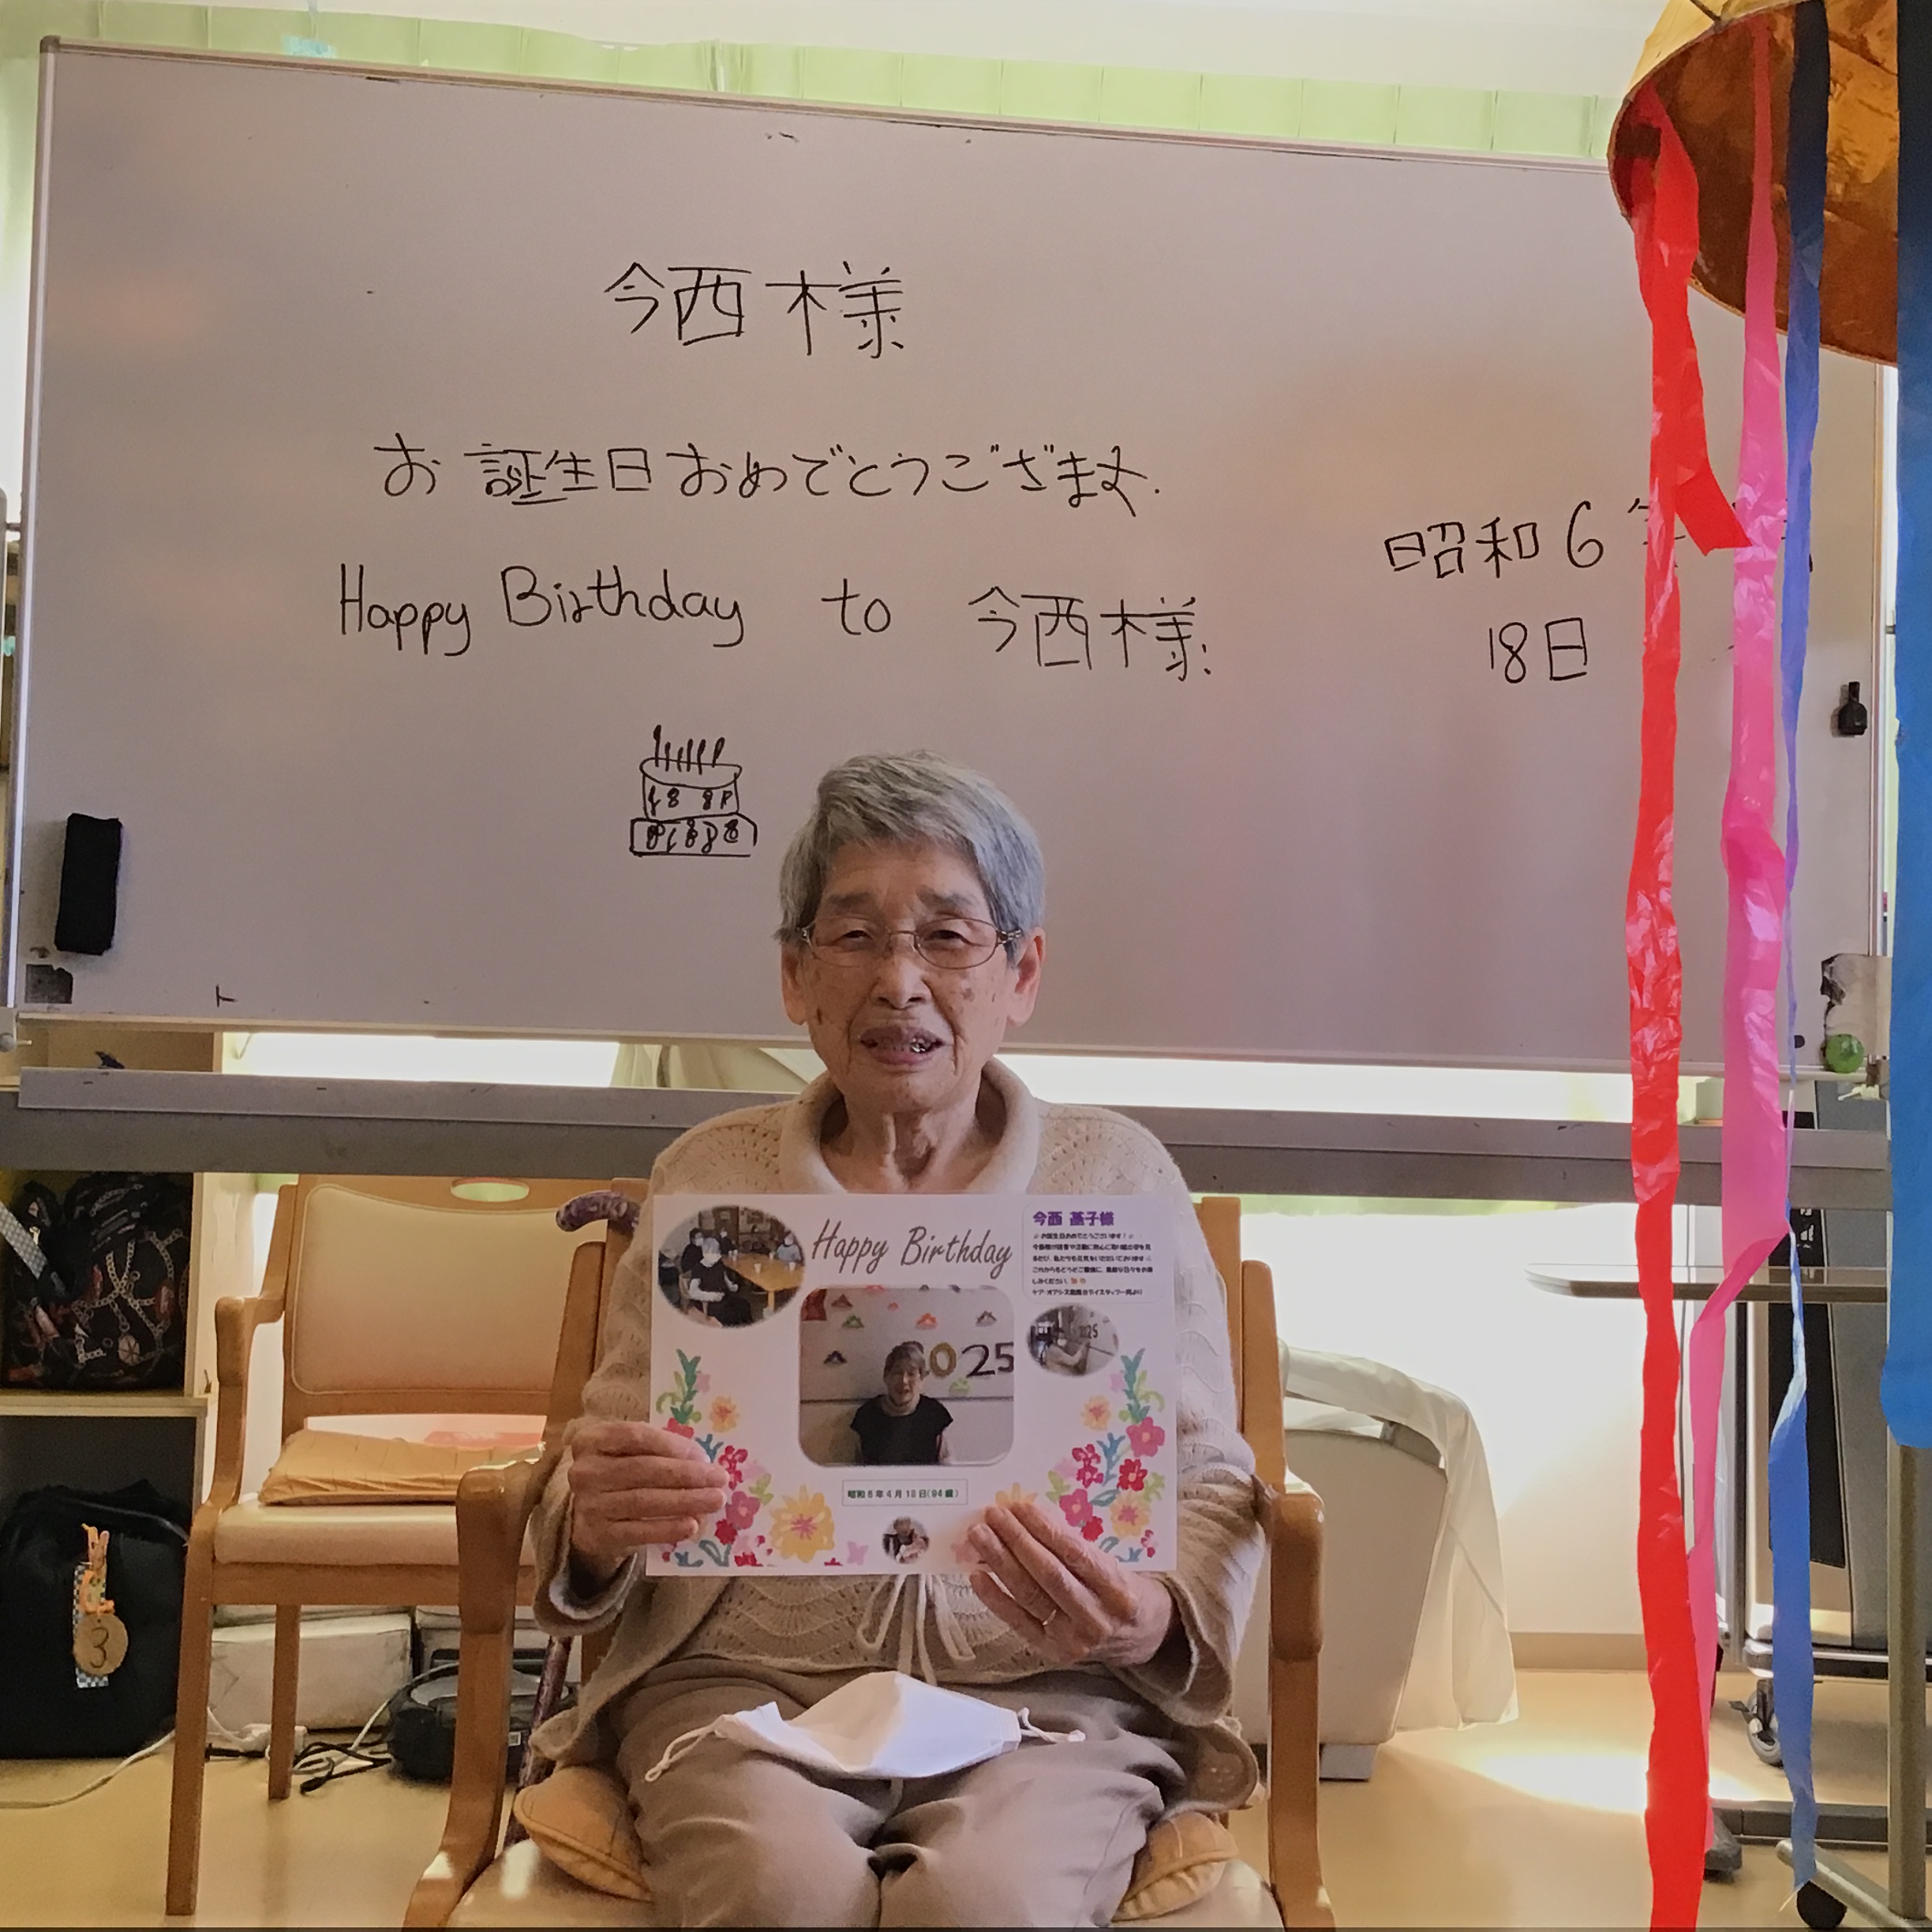 今西様
お誕生日おめでとうございます.
Happy Birthday to 今西様.
昭和6年
18日
Happy Birthday
今西 基子様
2025
昭和6年4月18日(94歳)
3